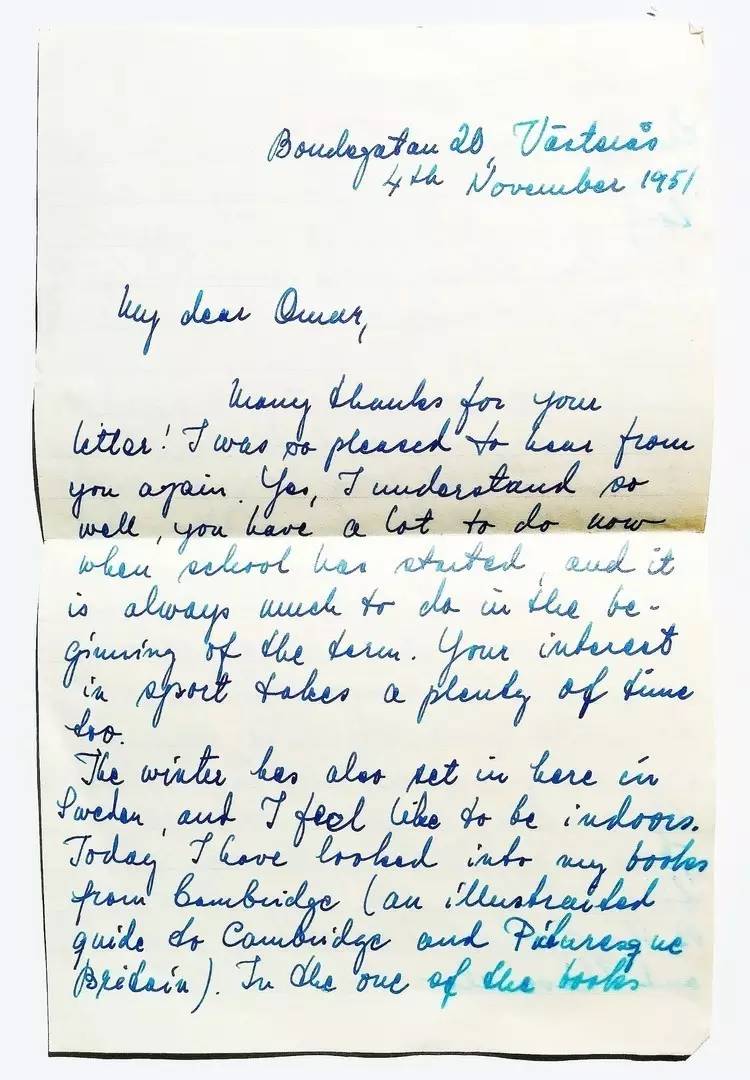 Bondegatan 20, Västerås
4th November 1951
My dear Omar,
Many thanks for your
letter! I was so pleased to hear from
you again. Yes, I understand so
well, you have a lot to do now
when school has started, and it
is always much to do in the be-
ginning of the term. Your interest
in sport takes a plenty of time
too.
The winter has also set in here in
Sweden, and I feel like to be indoors.
Today I have looked into my books
from Cambridge (an illustraited
guide to Cambridge and Picturesque
Britain). In the one of the books